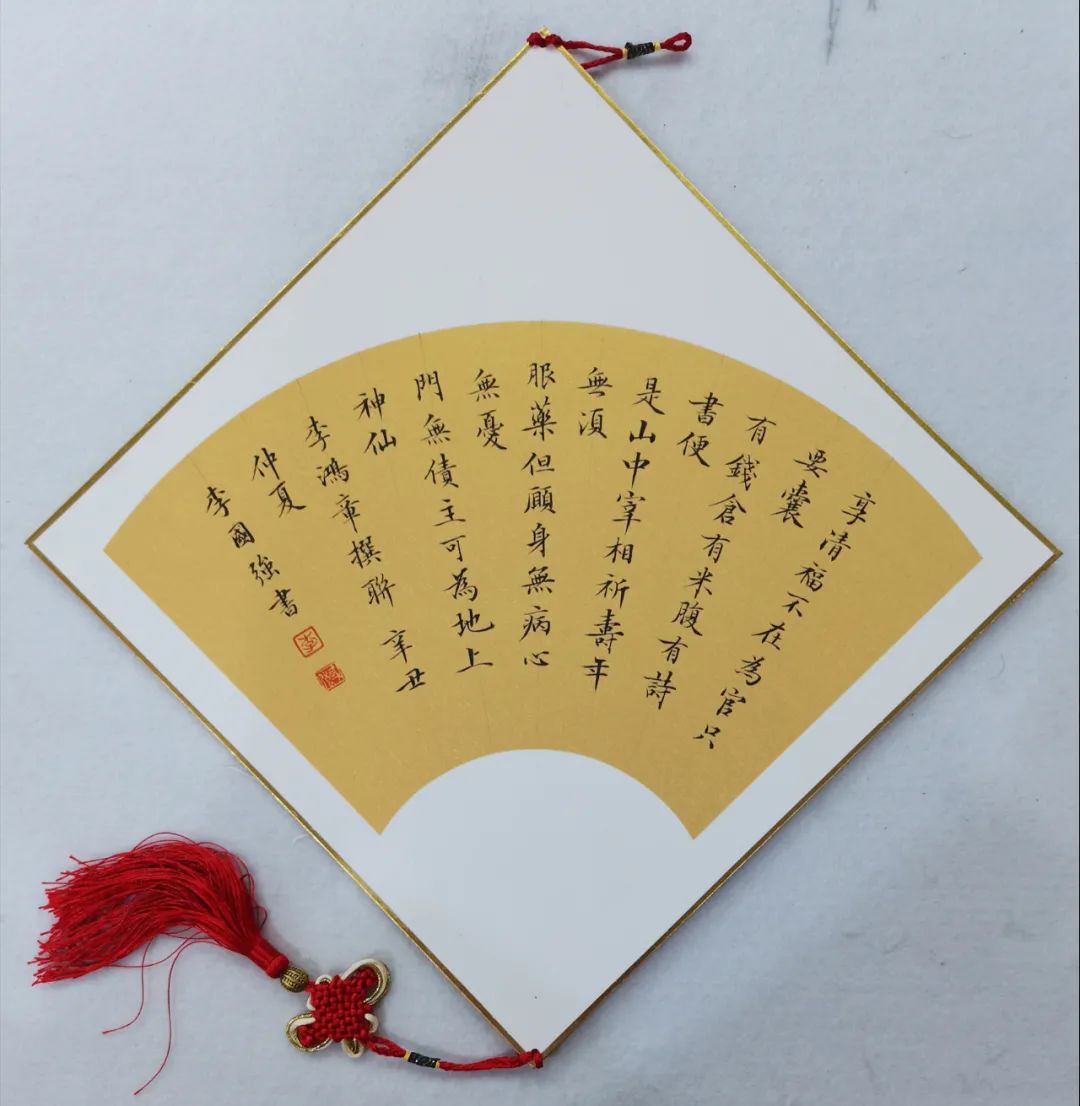 享清福不在為官只
要囊
有錢倉有米腹有詩
書便
是山中宰相祈壽年
無湏
服藥但願身無病心
無憂
門無債主可為地上
神仙
李鴻章撰聯 辛丑
仲夏
李國強書
李